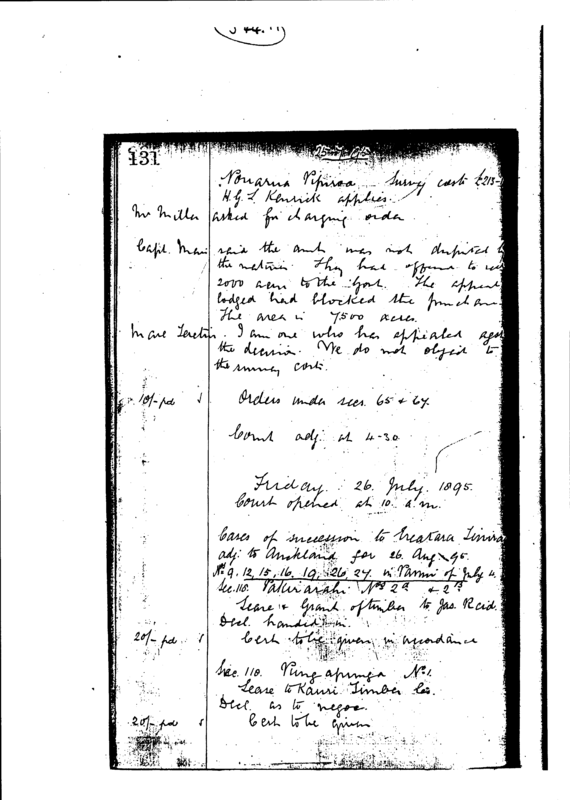 131
25-7-95
Survey costs £213-
H.G.L. Kenrick applies.
Mr Miller asked for charging order
Capt. Mair said the amt was not disputed b
the natives. They had offered to sell
2000 acres to the Govt. The appeal
lodged had blocked the purchase
The area is 7500 acres.
I am one who has appealed agst
the decision. We do not object to
the survey costs.
10/- pd Orders under secs. 65 & 67.
Court adj. at 4-30
Friday 26 July. 1895.
Court opened at 10 a.m.
Cases of succession to
adj. to Auckland for 26 Aug 95.
Nos 9. 12, 15, 16, 19, 26, 27 in of July 4.
Sec. 118. Nos 2A & 2B
Lease & Grant of timber to Jas. Reid.
Decl. handed in.
20/- pd Cert. to be given in accordance
Sec. 118. No. 1.
Lease to Kauri Timber Co.
Decl. as to
20/- pd Cert to be given